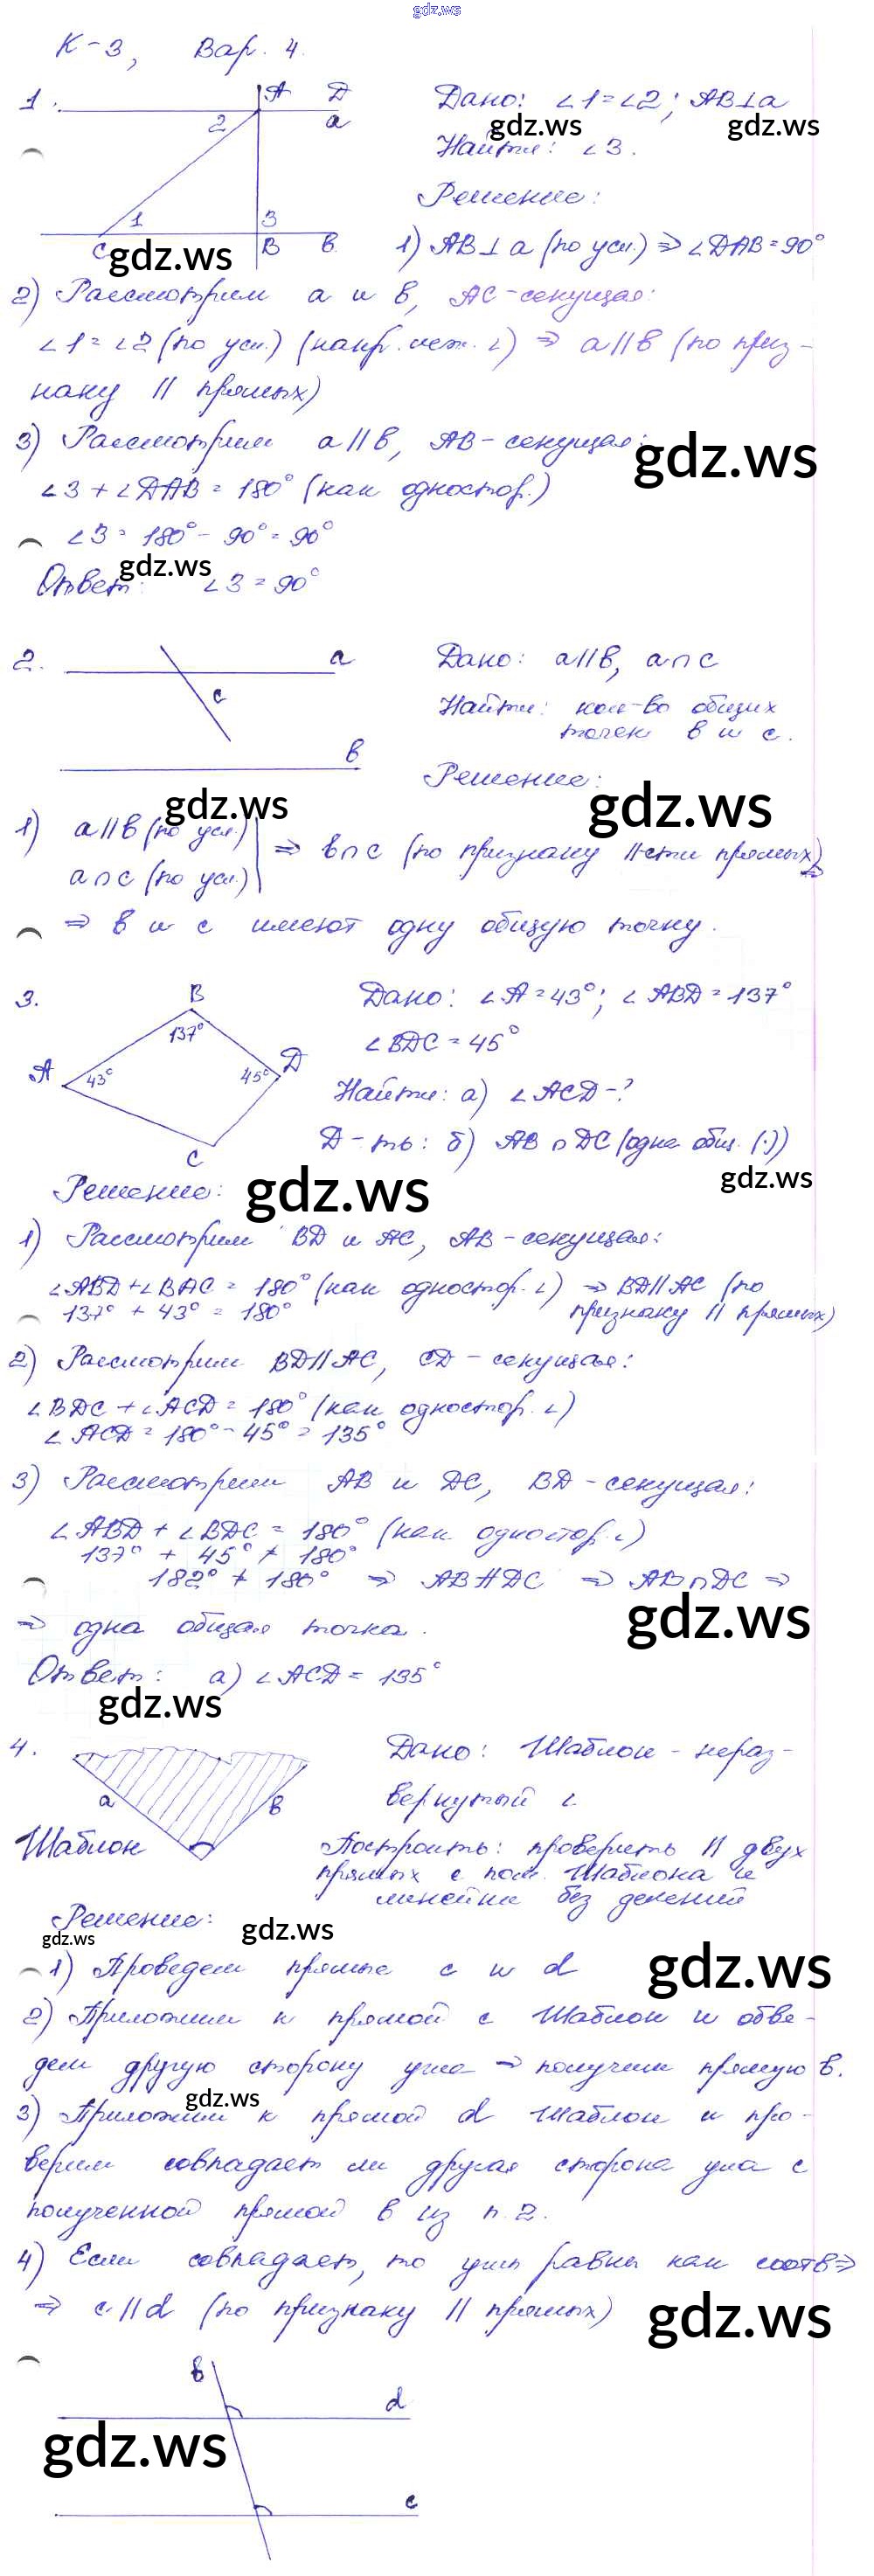 gdz.ws
К-3, Вар. 4.
1.
A D
2 a
1 3
C B в
Дано: ∠1=∠2; AB⊥a
gdz.ws gdz.ws
Найти: ∠3.
Решение:
1) AB⊥a (по усл.) ⇒ ∠DAB=90°
gdz.ws
2) Рассмотрим a и в, AC-секущая:
∠1=∠2 (по усл.) (накр. леж. ∠) ⇒ a//в (по приз-
наку // прямых)
3) Рассмотрим a//в, AB-секущая:
gdz.ws
∠3+∠DAB=180° (как одностор.)
∠3=180°-90°=90°
gdz.ws
Ответ: ∠3=90°
2.
a
c
в
Дано: a//в, a∩c
Найти: кол-во общих
точек в и c.
Решение:
gdz.ws gdz.ws
1) a//в (по усл.)
a∩c (по усл.) ⇒ в∩c (по признаку //сти прямых) ⇒
⇒ в и c имеют одну общую точку.
3.
B
137°
A 43° 45° D
C
Дано: ∠A=43°; ∠ABD=137°
∠BDC=45°
Найти: а) ∠ACD-?
Д-ть: б) AB∩DC (одна общ. (·))
gdz.ws
Решение:
gdz.ws
1) Рассмотрим BD и AC, AB-секущая:
∠ABD+∠BAC=180° (как одностор. ∠) ⇒ BD//AC (по
137°+43°=180° признаку // прямых)
2) Рассмотрим BD//AC, CD-секущая:
∠BDC+∠ACD=180° (как одностор. ∠)
∠ACD=180°-45°=135°
3) Рассмотрим AB и DC, BD-секущая:
∠ABD+∠BDC=180° (как одностор. ∠)
137°+45°≠180°
182°≠180° ⇒ AB∦DC ⇒ AB∩DC ⇒
gdz.ws
⇒ одна общая точка.
Ответ: а) ∠ACD=135°
gdz.ws
4.
a в
Шаблон
Дано: Шаблон-нераз-
вернутый ∠
Построить: проверить // двух
прямых с пом. Шаблона и
линейки без делений
Решение:
gdz.ws gdz.ws
gdz.ws
1) Проведем прямые c и d
2) Приложим к прямой c Шаблон и обве-
дем другую сторону угла ⇒ получим прямую в.
gdz.ws
3) Приложим к прямой d Шаблон и про-
верим совпадает ли другая сторона угла с
полученной прямой в из п.2.
4) Если совпадает, то углы равны как соотв ⇒
⇒ c//d (по признаку // прямых)
gdz.ws
в
d
gdz.ws
c